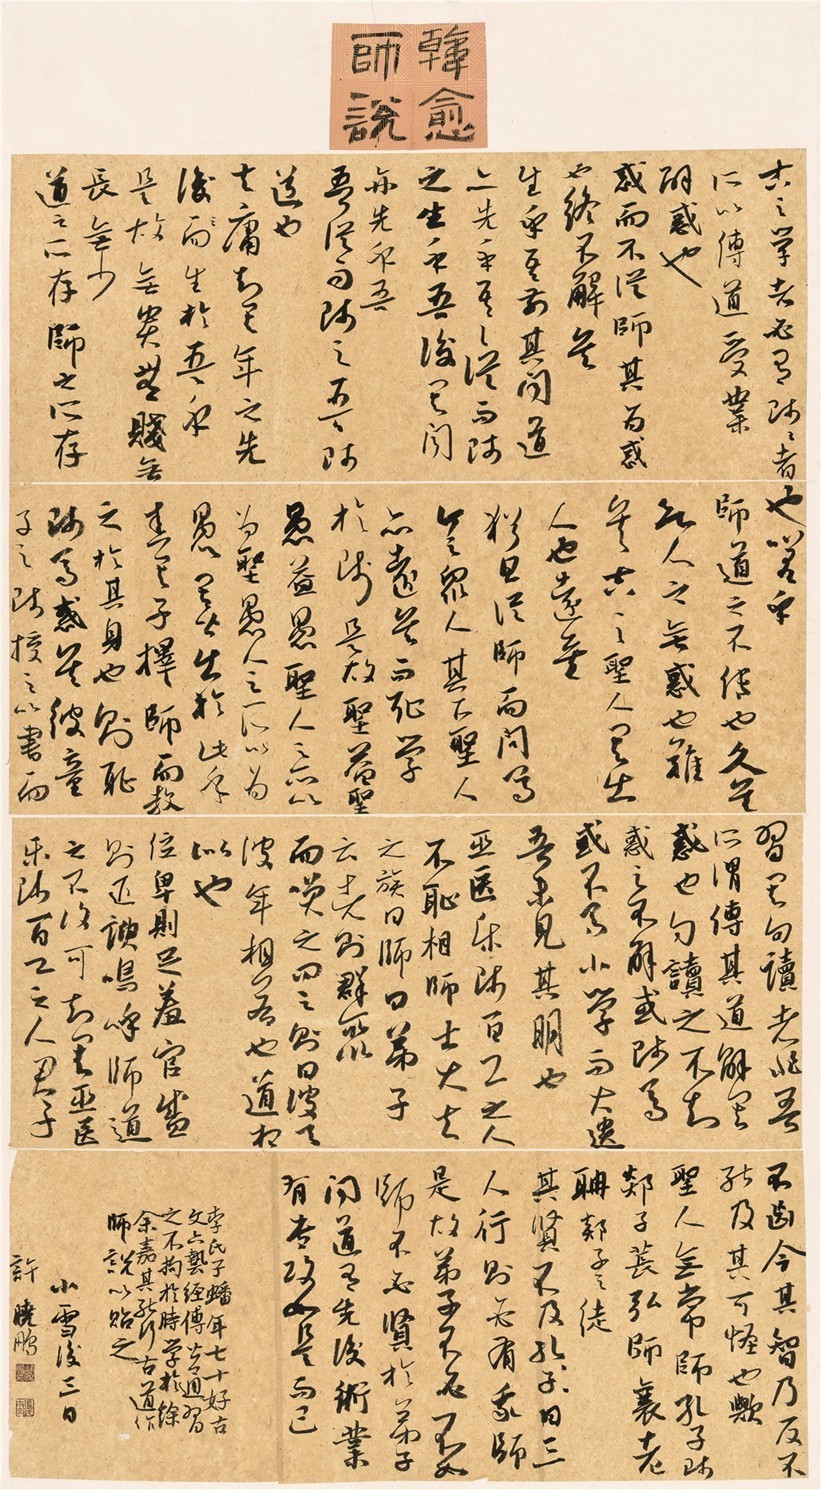 韓愈
師說
古之學者必有師師者
所以傳道受業
解惑也
惑而不從師其為惑
也終不解矣
生乎吾前其聞道
亦先乎吾吾從而師
之生乎吾後其聞
亦先乎吾
吾從而師之吾師
道也
夫庸知其年之先
後而生於吾乎
是故無貴無賤無
長無少
道之所存師之所存
也嗟乎
師道之不傳也久矣
欲人之無惑也難
矣古之聖人其出
人也遠矣
猶且從師而問焉
今之眾人其下聖人
亦遠矣而恥學
於師是故聖益聖
愚益愚聖人之所以
為聖愚人之所以為
愚其皆出於此乎
愛其子擇師而教
之於其身也則恥
師焉惑矣彼童
子之師授之以書而
習其句讀者非吾
所謂傳其道解其
惑也句讀之不知
惑之不解或師焉
或不焉小學而大遺
吾未見其明也
巫醫樂師百工之人
不恥相師士大夫
之族曰師曰弟子
云者則群聚
而笑之問之則曰彼與
彼年相若也道相
似也
位卑則足羞官盛
則近諛嗚呼師道
之不復可知矣巫醫
樂師百工之人君子
不齒今其智乃反不
能及其可怪也歟
聖人無常師孔子師
郯子萇弘師襄老
聃郯子之徒
其賢不及孔子孔子曰三
人行則必有我師
是故弟子不必不如
師不必賢於弟子
聞道有先後術業
有專攻如是而已
李氏子蟠年七十好古
文六藝經傳皆通習
之不拘於時學於徐
余嘉其能行古道作
師說以貽之
小雪後三日
許曉鵬